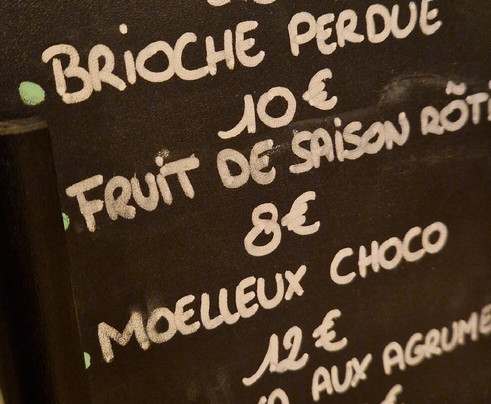 BRIOCHE PERDUE
10€
FRUIT DE SAISON RÔTI
8€
MOELLEUX CHOCO
12€
AUX AGRUME
€